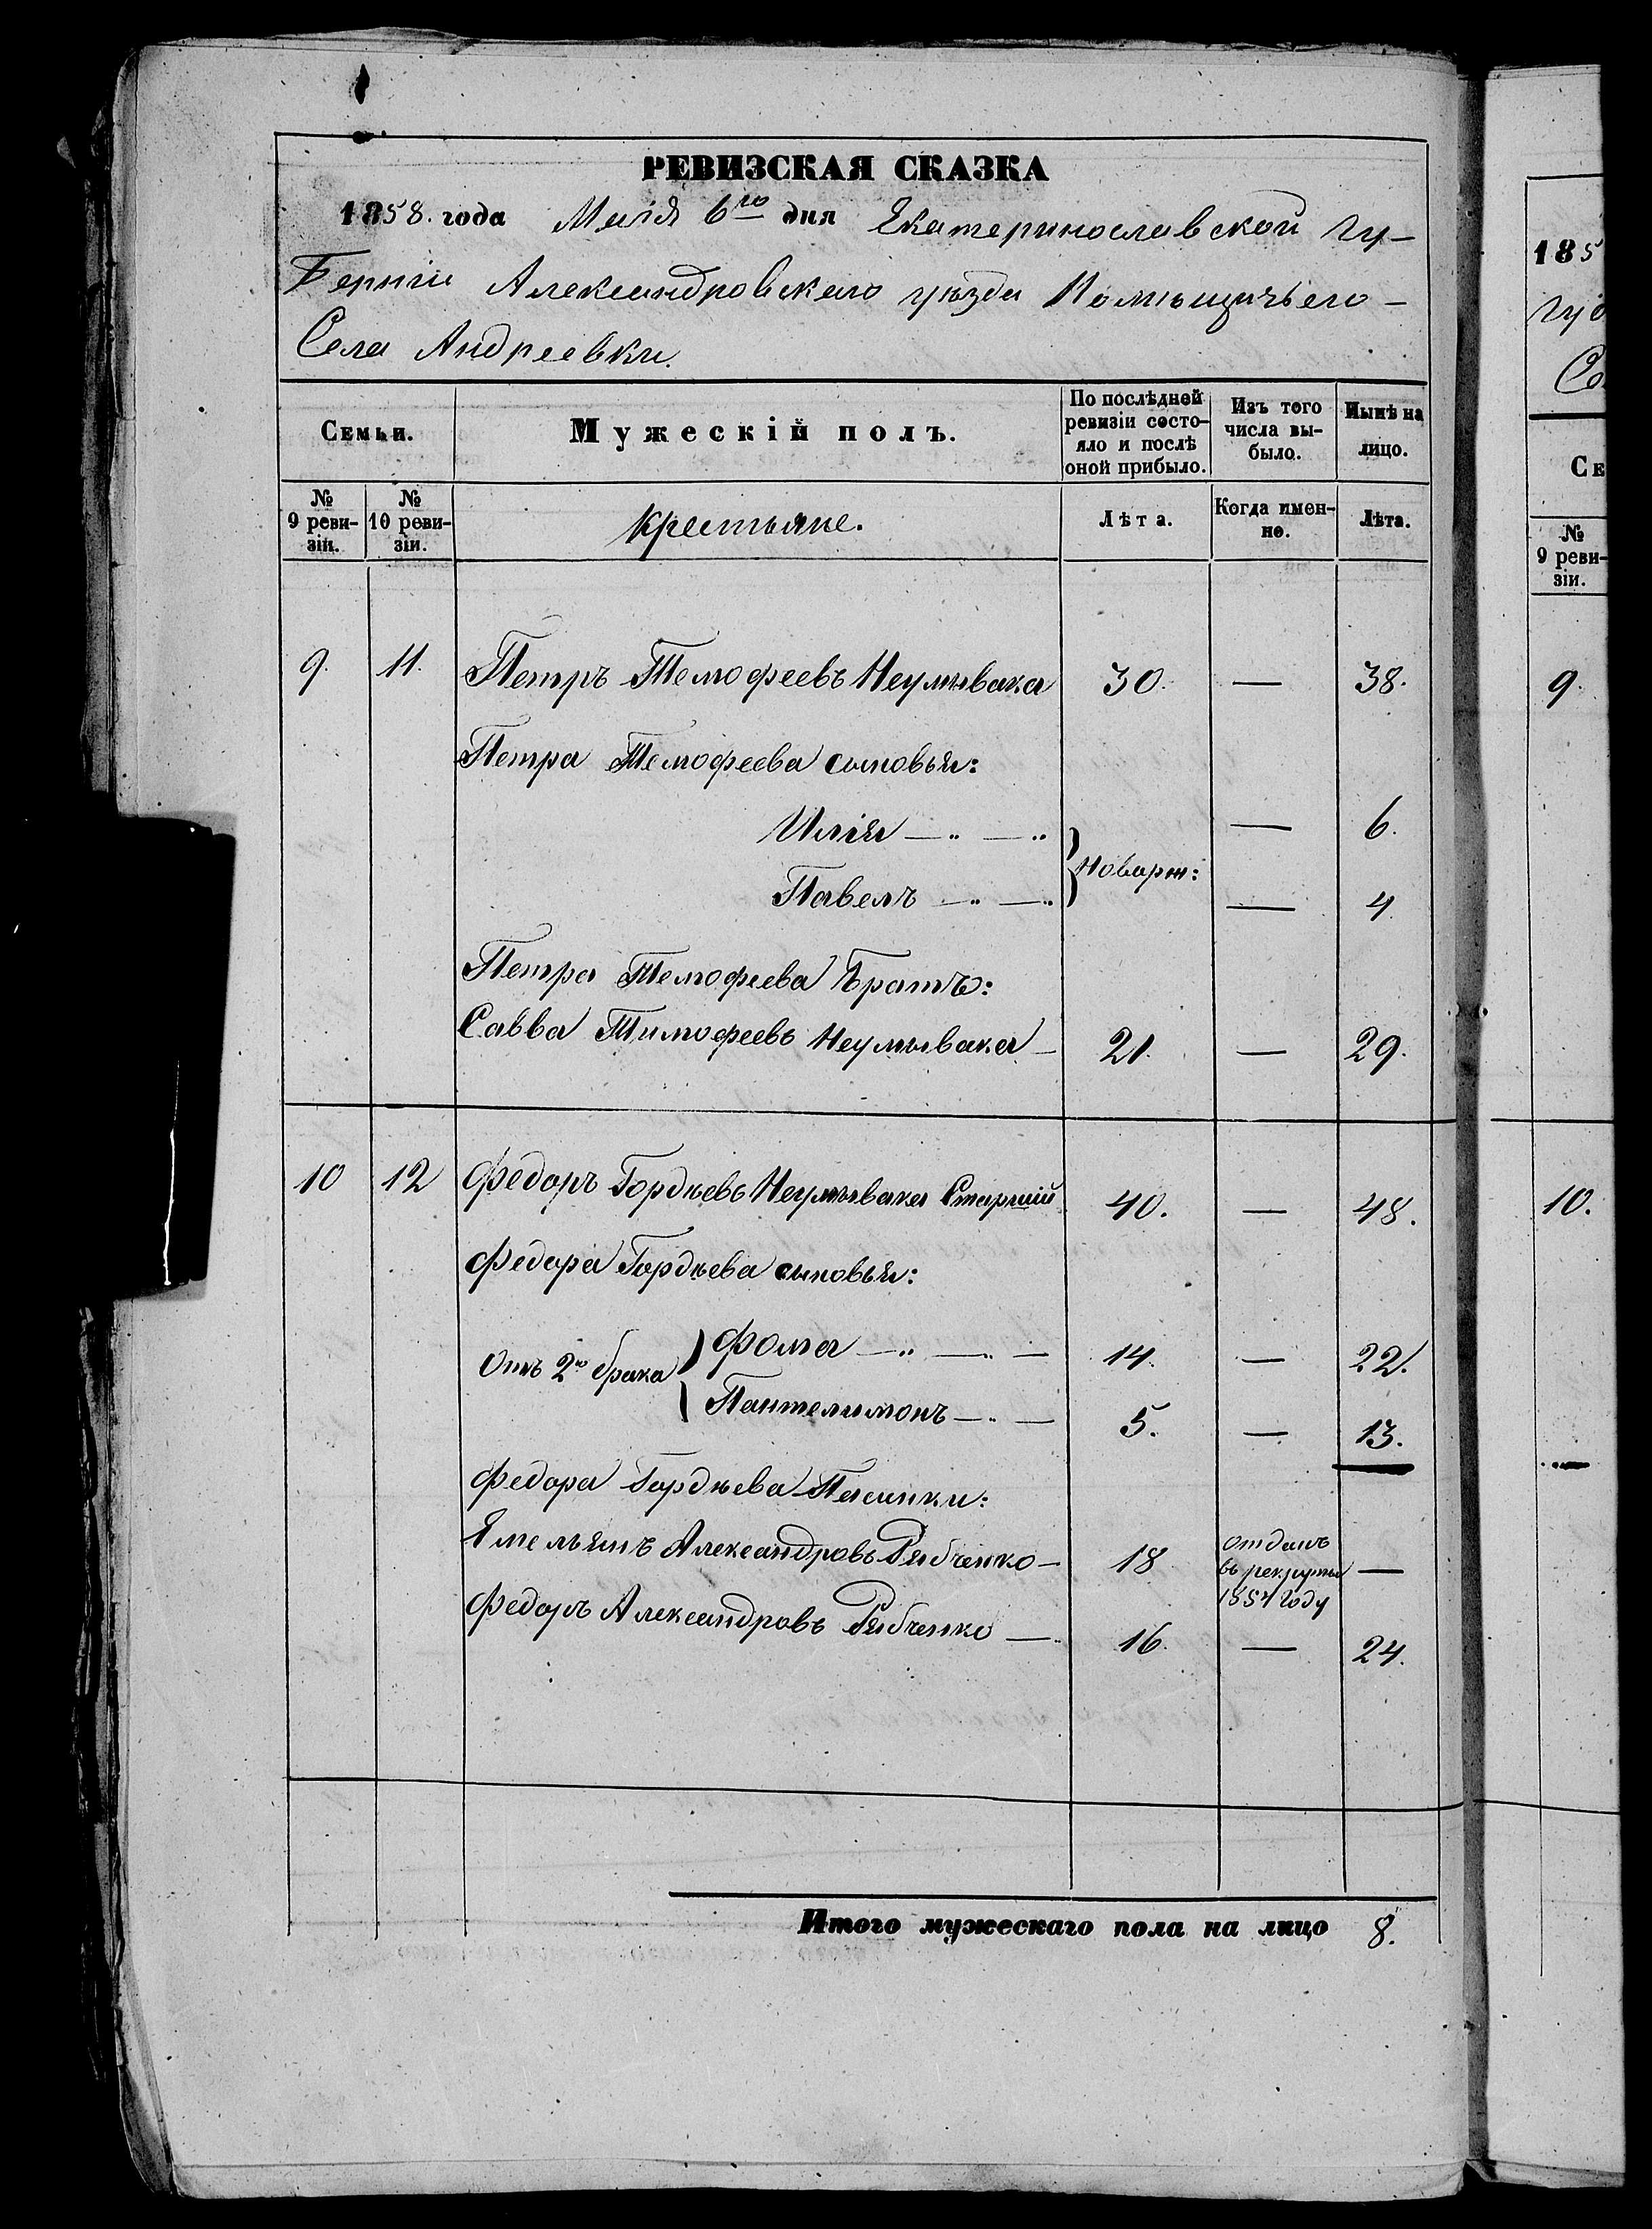 РЕВИЗСКАЯ СКАЗКА
1858. года Маія 6го дня Екатеринославской гу-
берніи Александровскаго уѣзда Помѣщичьего-
Села Андреевки.
Семьи. Мужескій полъ. По послѣдней ревизіи состо-яло и послѣ оной прибыло. Изъ того числа вы-было. Нынѣ на лицо.
№ 9 реви-зіи. № 10 реви-зіи. Крестьяне. Лѣта. Когда имен-но. Лѣта.
9. 11. Петръ Темофеевъ Неумывака 30. — 38.
Петра Темофеева сыновья:
Илія —„ —„ — 6.
Новорж:
Павелъ —„ —„ — 4
Петра Темофеева братъ:
Савва Тимофеевъ Неумывака — 21. — 29.
10 12 Федоръ Гордѣевъ Неумывака Старшій 40. — 48.
Федора Гордѣева сыновья:
Отъ 2го брака Фома —„ —„ — 14. — 22.
Пантелимонъ —„ — 5. — 13.
Федора Гордѣева Пасинки:
Ямельянъ Александровъ Рябченко — 18 отданъ въ рекруты 1854 году —
Федоръ Александровъ Рябченко — 16. — 24.
Итого мужескаго пола на лицо 8.
185
губ
Се
Се
№
9 реви-
зіи.
9.
10.